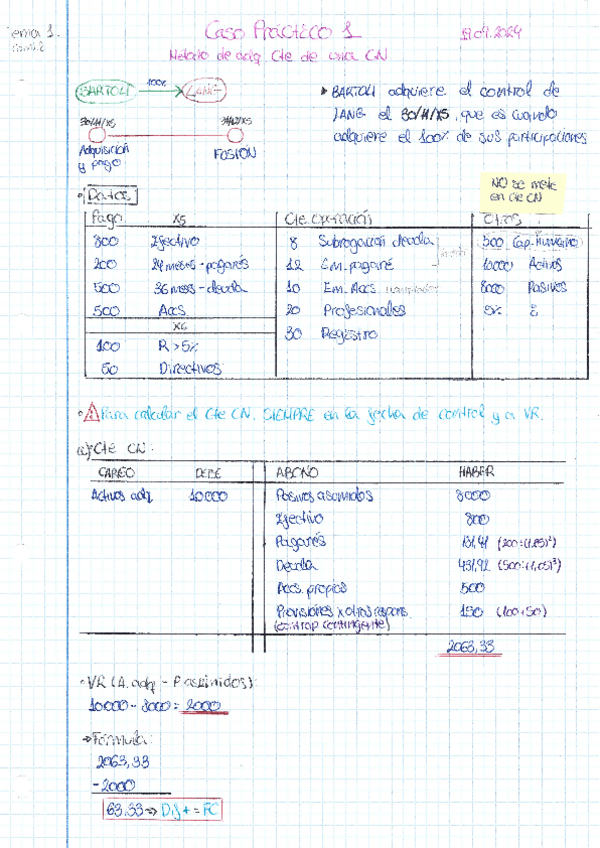 Tema 1.
Caso Práctico 1
19.09.2024
Método de adq. Cte de una CN
BARTOLI 100% LANG
▸ BARTOLI adquiere el control de
LANG el 30/11/X5, que es cuando
adquiere el 100% de sus participaciones
30/11/X5
Adquisición
y pago
FUSIÓN
NO se mete
en cte CN
• Datos
Pago X5
Cte. operación
Otros
800 Efectivo
8 Subrogación deuda
500 Cap. Humano
200 24 meses - pagarés
12 Em. pagaré
10000 Activos
500 36 mess - deuda
10 Em. Accs.
8000 Pasivos
500 Accs
20 Profesionales
5% i
X6
30 Registro
100 R>5%
50 Directivos
• Para calcular el Cte CN, SIEMPRE en la fecha de control y a VR.
a) Cte CN:
CARGO DEBE ABONO HABER
Activos adq. 10000 Pasivos asumidos 8000
Efectivo 800
Pagarés 181,41 (200:(1,05)²)
Deuda 431,92 (500:(1,05)³)
Accs. propias 500
Provisiones x otras respons. 150 (100+50)
(contrap contingente)
2063,33
• VR (A. adq - P asumidos):
10000 - 8000 = 2000
→ Fórmula:
2063,33
-2000
63,33 ⇒ Dif + = FC